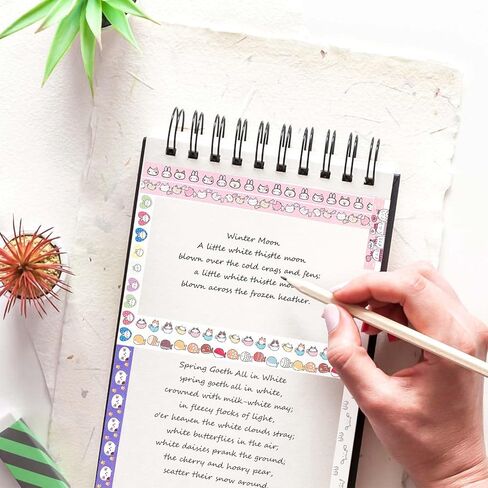 Winter Moon
A little white thistle moon
blown over the cold crags and fens:
a little white thistle moon
blown across the frozen heather.
Spring Goeth All in White
spring goeth all in white,
crowned with milk-white may;
in fleecy flocks of light,
o'er heaven the white clouds stray;
white butterflies in the air;
white daisies prank the ground;
the cherry and hoary pear,
scatter their snow around